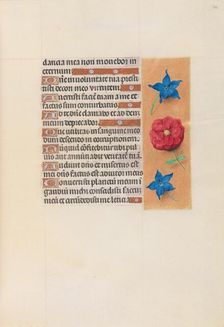 dancia mea non mouebor in
eternum
Dñe in uoluntate tua pres
titisti decori meo uirtutem
Auertisti faciē tuā a me et
factus sum conturbatus
Ad te dñe clamabo et ad deum
meum deprecabor
Que utilitas in sanguine meo
dum descendo in corruptionem
puluis
aut annunciabit ueritatē tuā
Audiuit dñs et misertus est
mei dñs factus est adiutor meus
Conuertisti planctū meum in
gaudiū michi conscidisti saccū
meū et circūdedisti me leticia